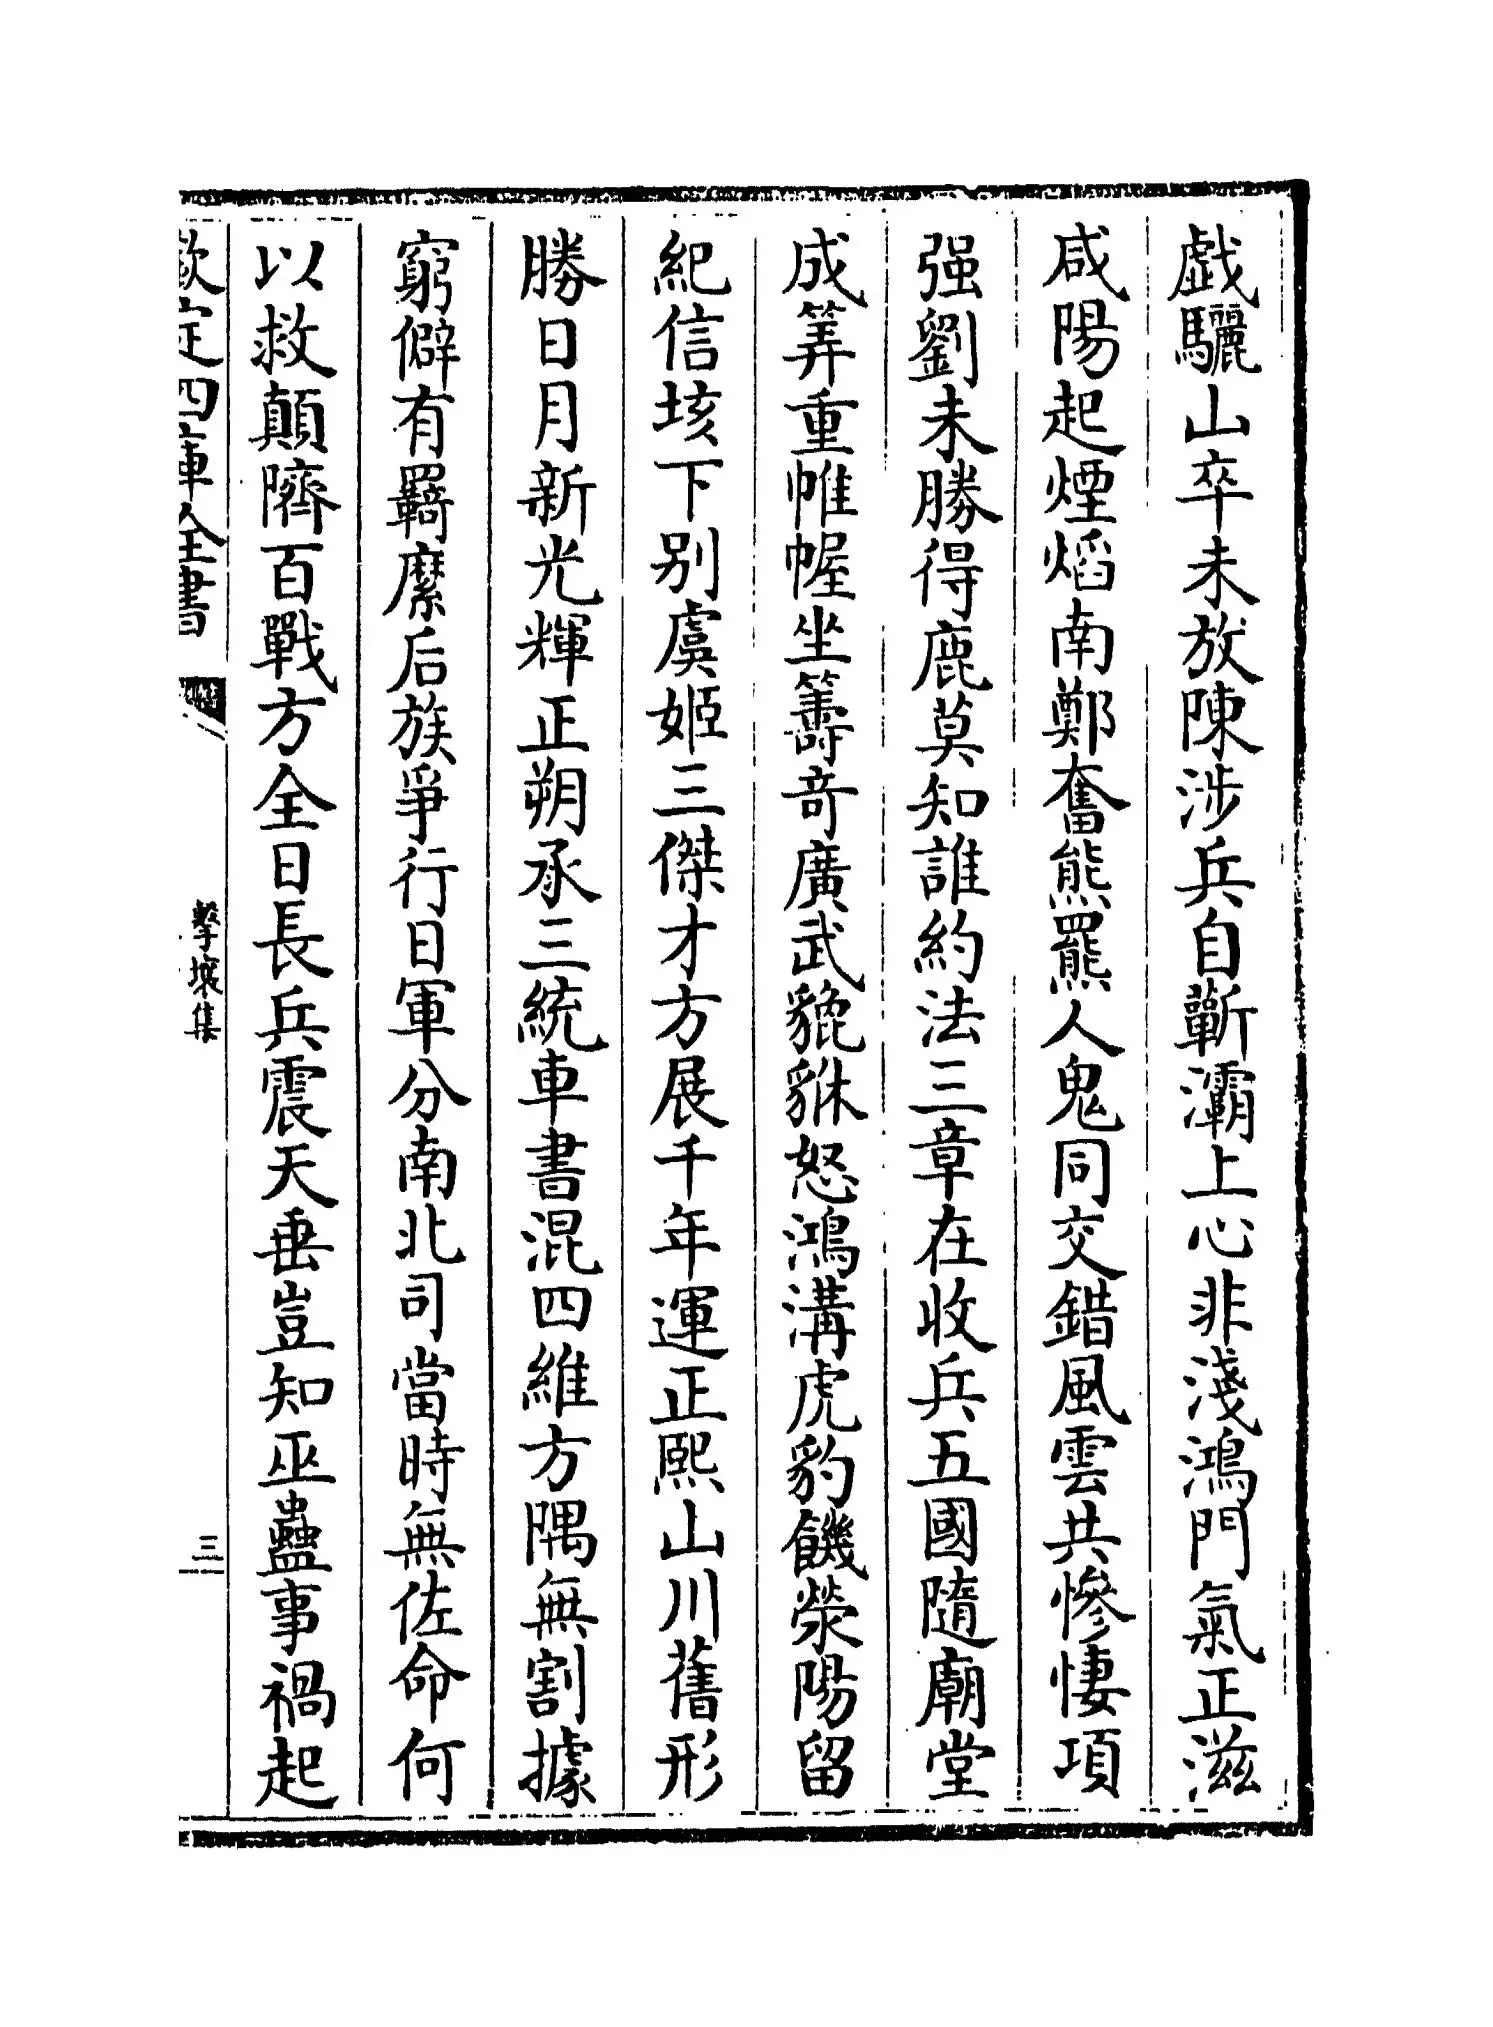 戯驪山卒未放陳涉兵自蘄灞上心非淺鴻門氣正滋
咸陽起煙焰南鄭奮熊羆人鬼同交錯風雲共慘悽項
强劉未勝得鹿莫知誰約法三章在收兵五國隨廟堂
成筭重帷幄坐籌奇廣武貔貅怒鴻溝虎豹饑滎陽留
紀信垓下別虞姬三傑才方展千年運正熙山川舊形
勝日月新光輝正朔承三統車書混四維方隅無割據
窮僻有羈縻后族爭行日軍分南北司當時無佐命何
以救顛隮百戰方全日長兵震天垂豈知巫蠱事禍起
欽定四庫全書
擊壤集
三